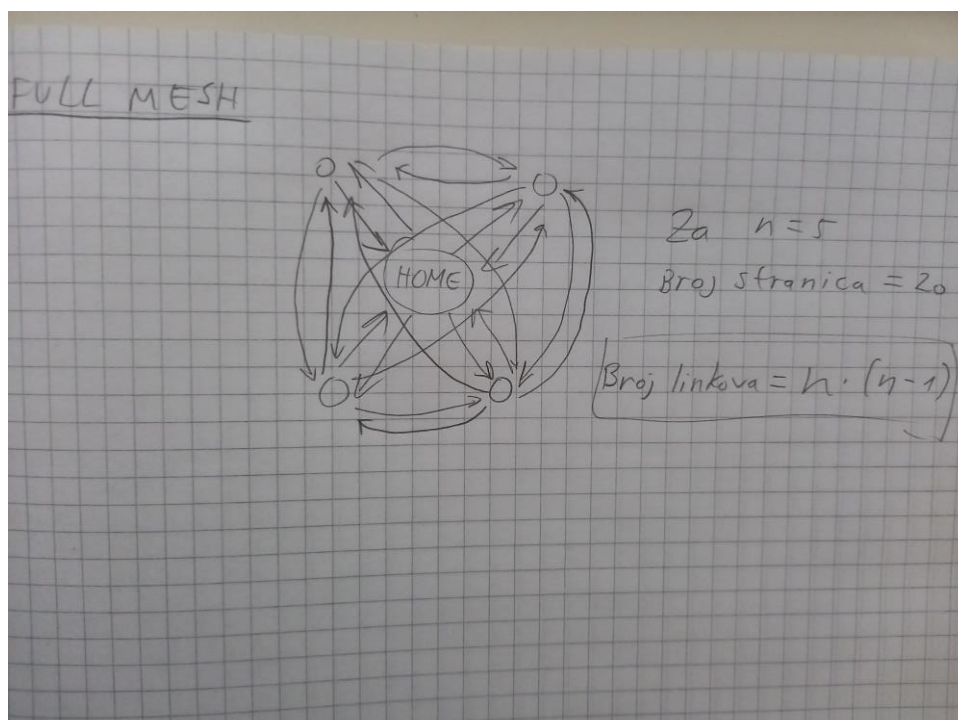 FULL MESH
HOME
Za n = 5
Broj stranica = 20
Broj linkova = n · (n-1)